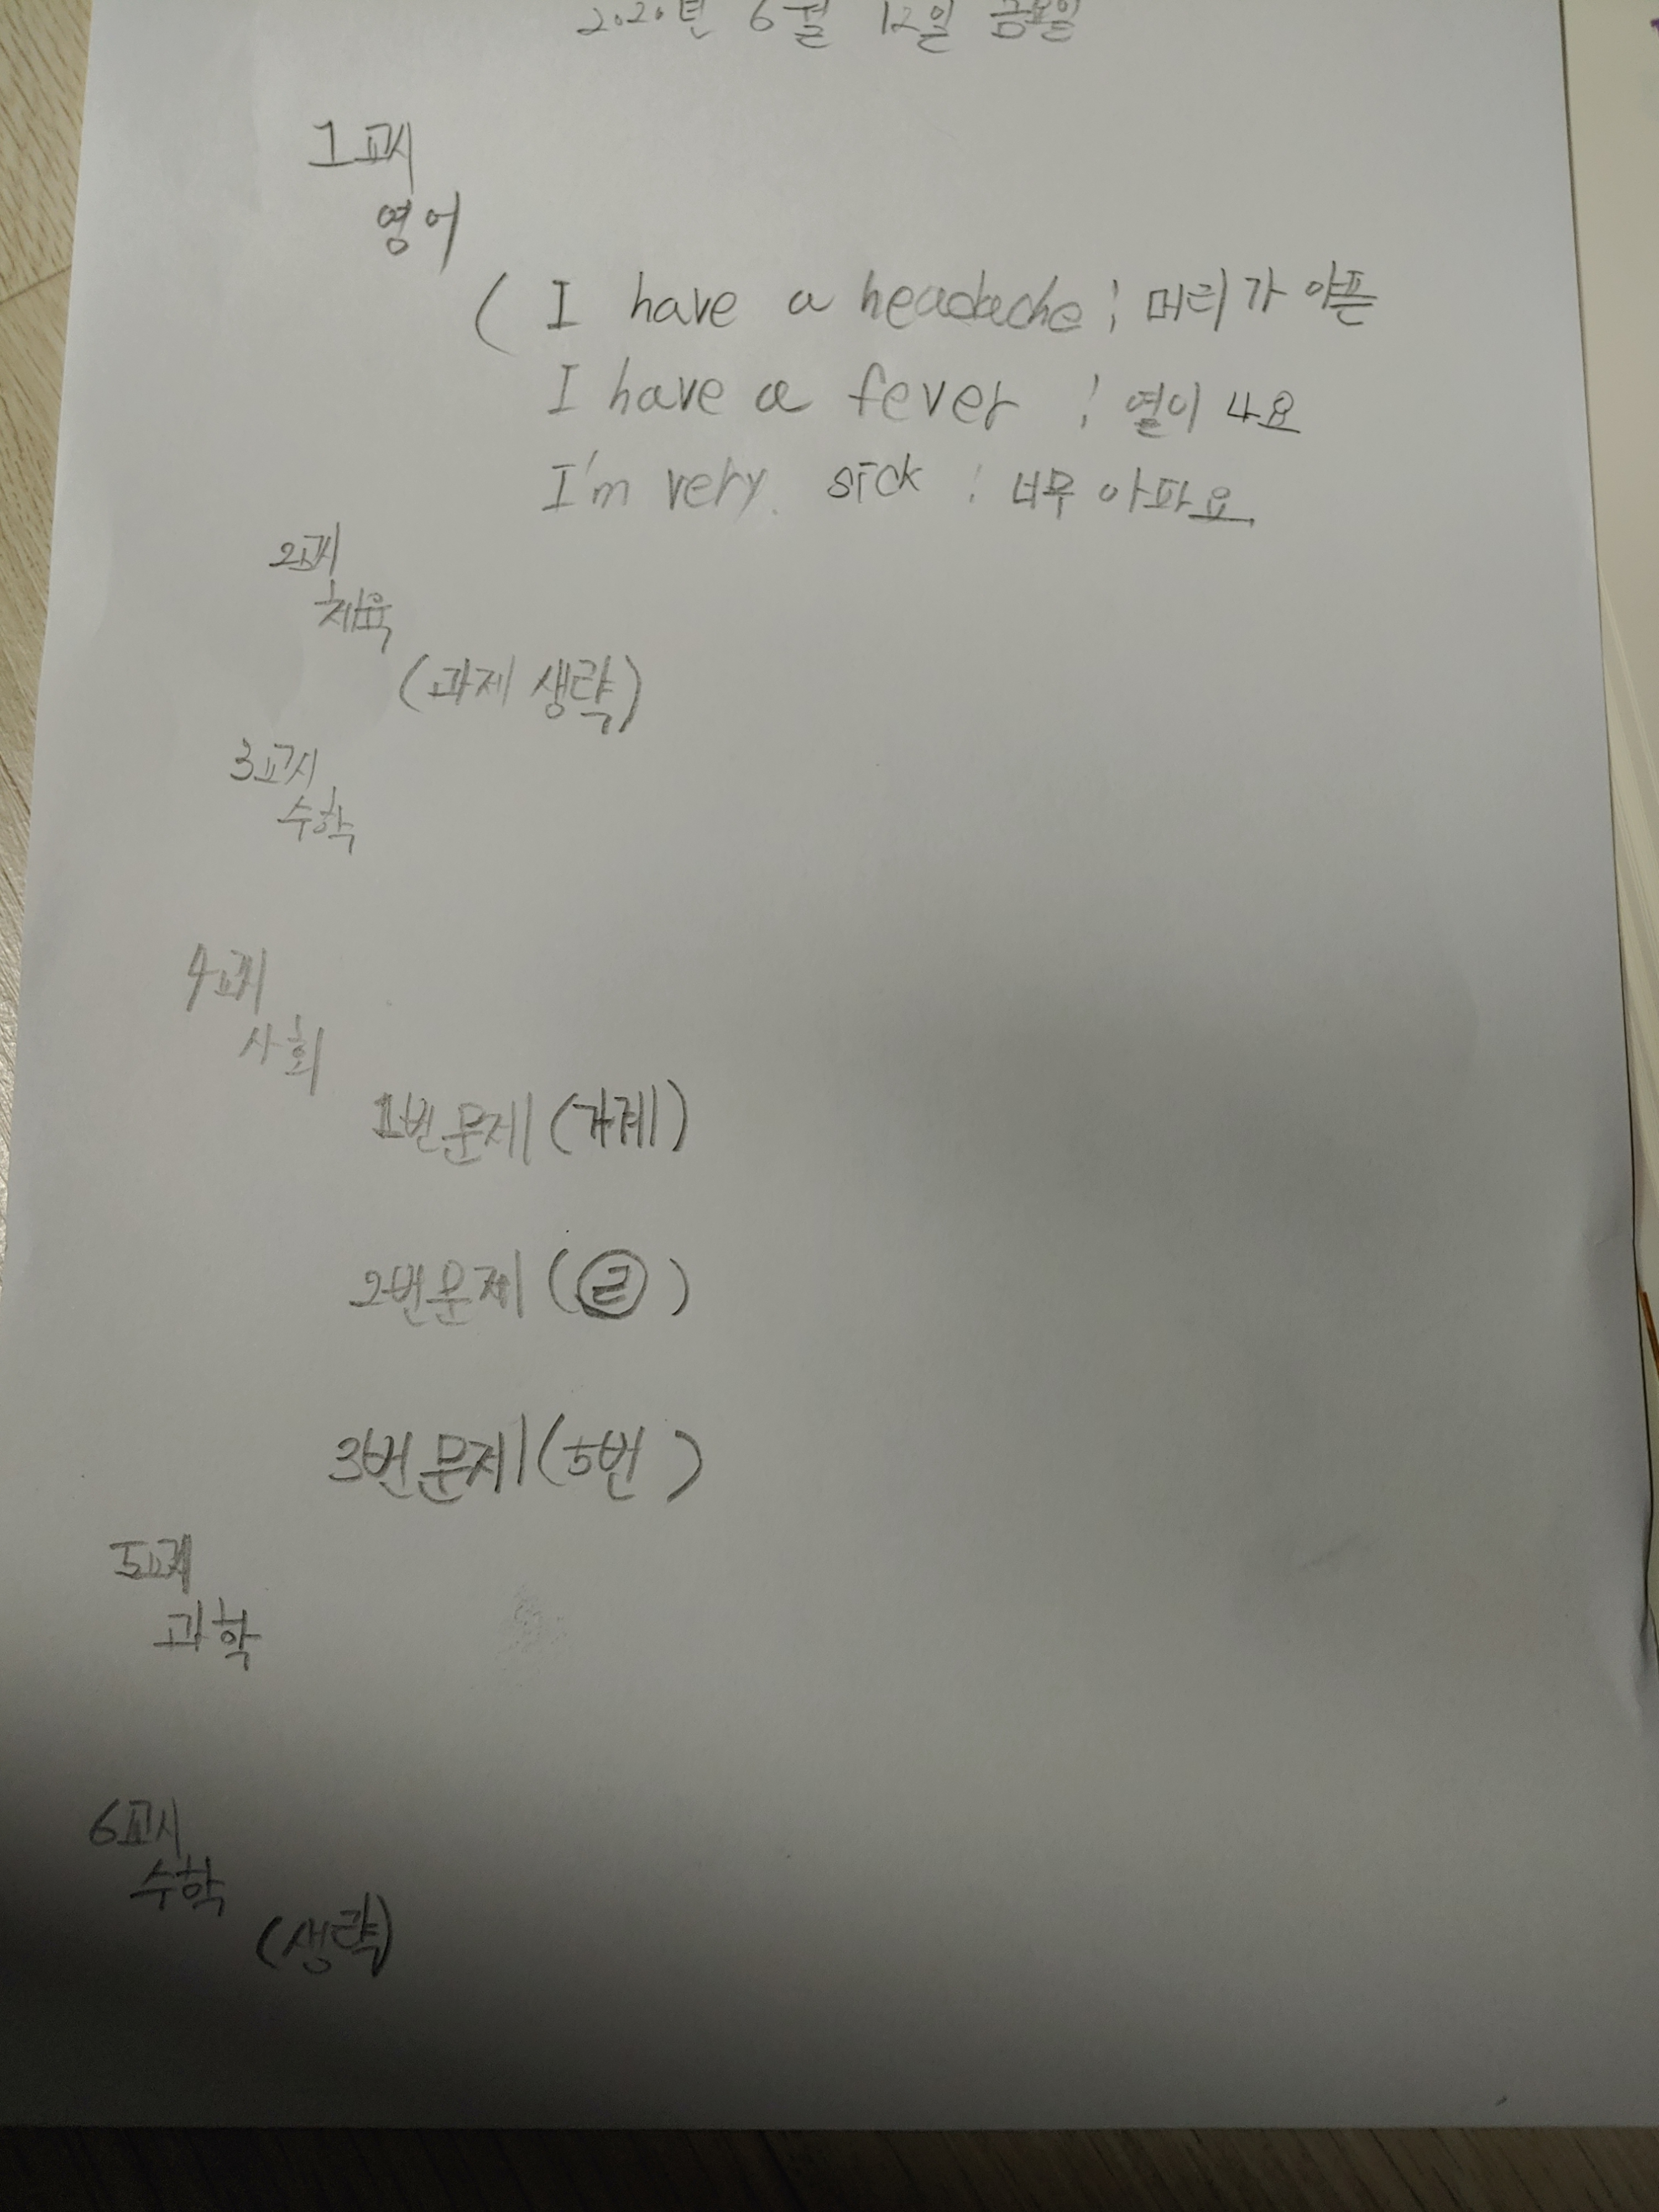 2020년 6월 12일 금요일
1교시
영어
( I have a headache : 머리가 아픈
I have a fever : 열이 나요
I'm very. sick : 너무 아파요
2교시
체육
(과제 생략)
3교시
수학
4교시
사회
1번 문제 (가계)
2번 문제 ( )
3번 문제 (5번)
5교시
과학
6교시
수학
(생략)